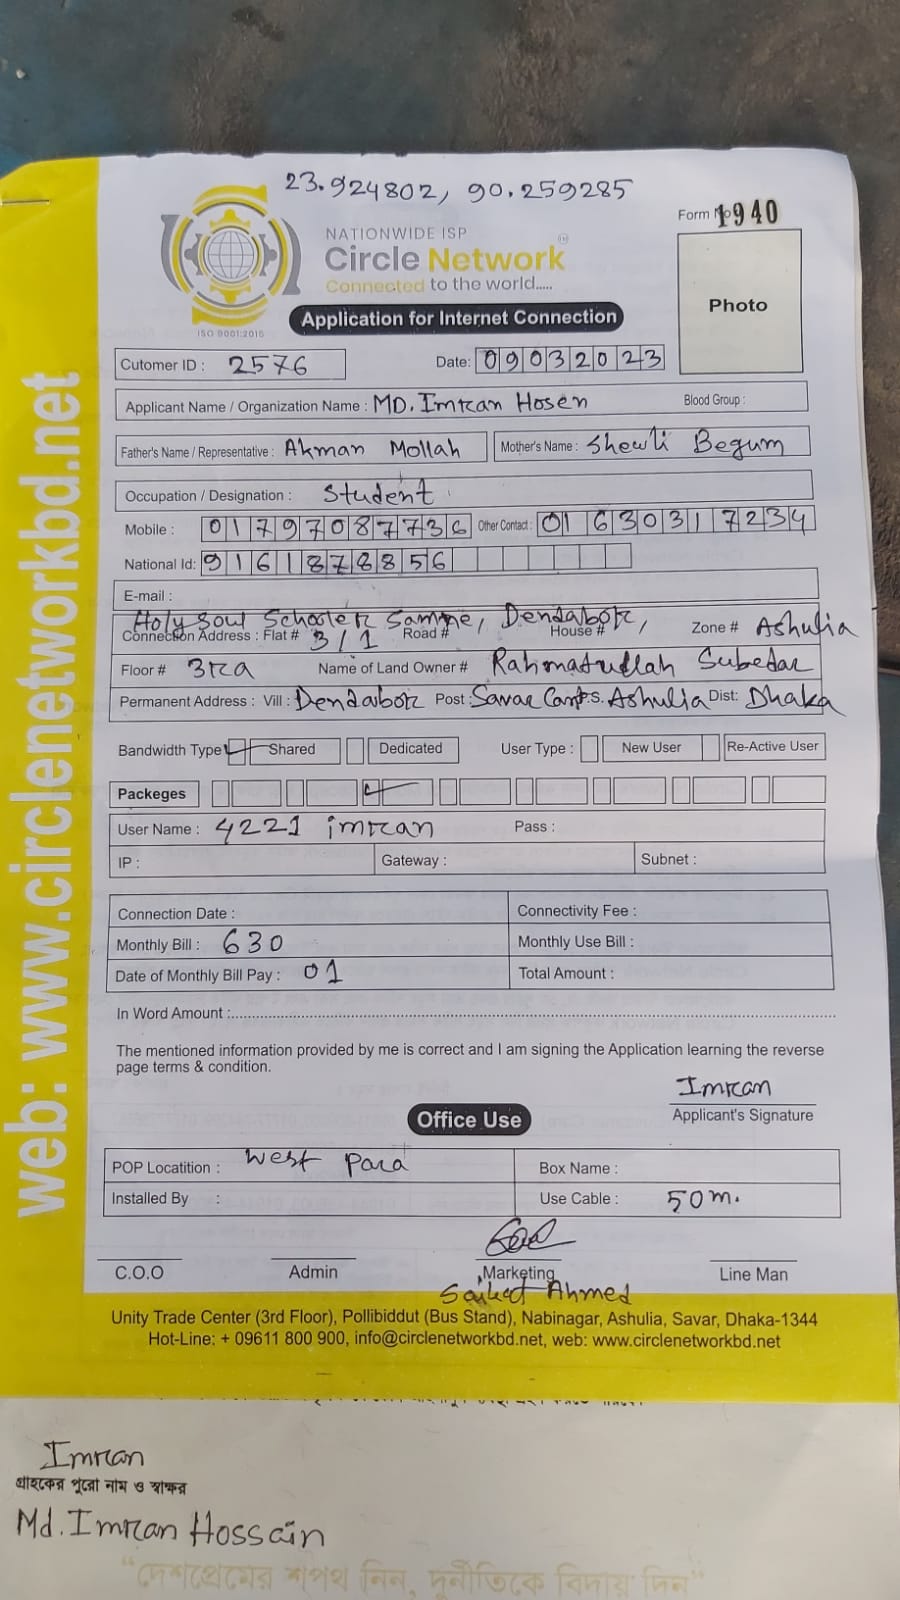 23.924802, 90.259285
Form No 1940
NATIONWIDE ISP
Circle Network
Connected to the world.....
ISO 9001:2015
Photo
Application for Internet Connection
Cutomer ID : 2576 Date: 09032023
Applicant Name / Organization Name : MD. Imran Hosen Blood Group :
Father's Name / Representative : Akman Mollah Mother's Name : Shewli Begum
Occupation / Designation : Student
Mobile : 01797087736 Other Contact : 01630317234
National Id: 9161878856
E-mail :
Holy Soul School Dendabor,
Connection Address : Flat # 3/1 Road # House # Zone # Ashulia
Floor # 3rd Name of Land Owner # Rahmatullah Subedar
Permanent Address : Vill : Dendabor Post : Savar Cant P.S. Ashulia Dist: Dhaka
Bandwidth Type Shared Dedicated User Type : New User Re-Active User
Packeges
User Name : 4221 imran Pass :
IP : Gateway : Subnet :
Connection Date : Connectivity Fee :
Monthly Bill : 630 Monthly Use Bill :
Date of Monthly Bill Pay : 01 Total Amount :
In Word Amount :
The mentioned information provided by me is correct and I am signing the Application learning the reverse
page terms & condition.
Imran
Applicant's Signature
Office Use
POP Locatition : West Para Box Name :
Installed By : Use Cable : 50 m.
C.O.O Admin Marketing Line Man
Saikat Ahmed
Unity Trade Center (3rd Floor), Pollibiddut (Bus Stand), Nabinagar, Ashulia, Savar, Dhaka-1344
Hot-Line: + 09611 800 900, info@circlenetworkbd.net, web: www.circlenetworkbd.net
web: www.circlenetworkbd.net
Imran
গ্রাহকের পুরো নাম ও স্বাক্ষর
Md. Imran Hossain
“দেশপ্রেমের শপথ নিন, দুর্নীতিকে বিদায় দিন”